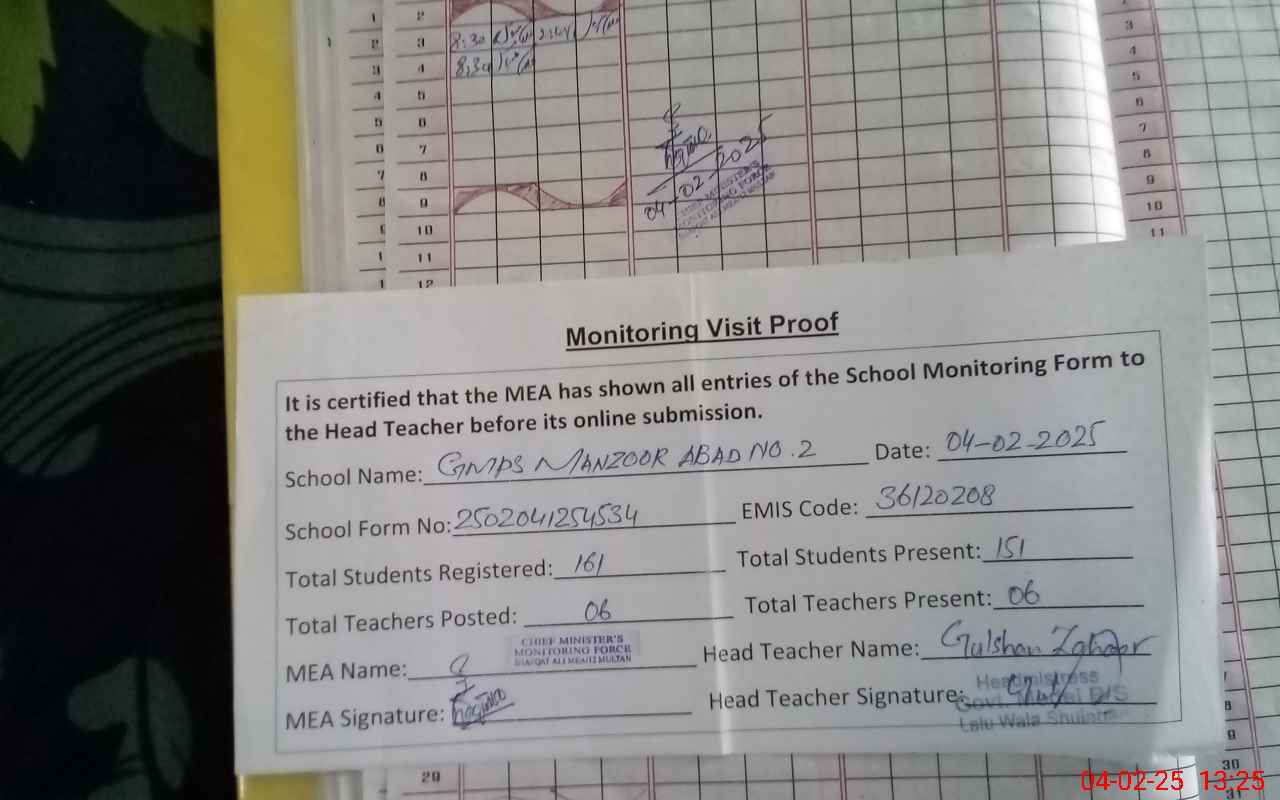 8:30
8:30
04-02-2025
CHIEF MINISTER'S
MONITORING FORCE
Monitoring Visit Proof
It is certified that the MEA has shown all entries of the School Monitoring Form to
the Head Teacher before its online submission.
School Name: GMPS MANZOOR ABAD NO.2 Date: 04-02-2025
School Form No: 2502041254534 EMIS Code: 36120208
Total Students Registered: 161 Total Students Present: 151
Total Teachers Posted: 06 Total Teachers Present: 06
CHIEF MINISTER'S
MONITORING FORCE
SHAFQAT ALI MEA#12 MULTAN
MEA Name: Head Teacher Name: Gulshan
MEA Signature: Head Teacher Signature:
Headmistress
Govt. P/S
Lalu Wala
29
30
31
04-02-25 13:25